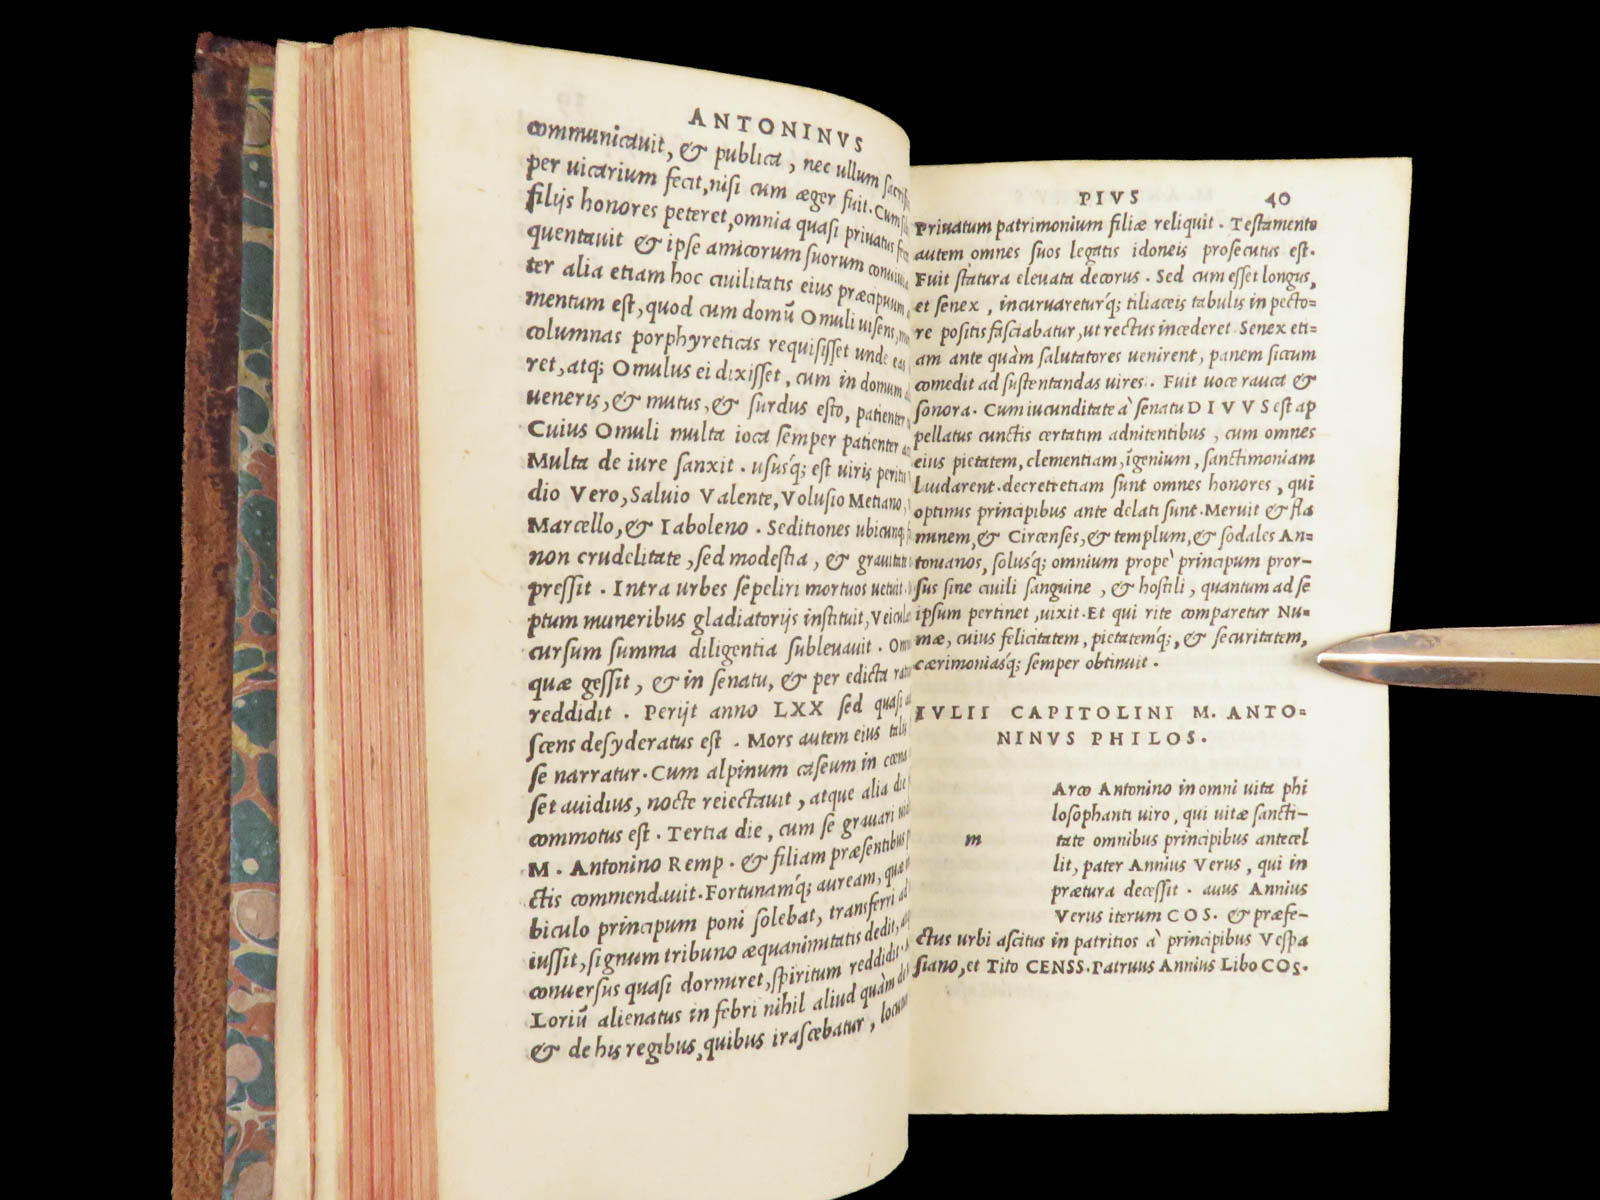 ANTONINVS
communicauit, & publica, nec ullum
per uicarium fecit, nisi cum æger fuit. Cum
filijs honores peteret, omnia quasi priuatus
quentauit & ipse amicorum suorum
ter alia etiam hoc ciuilitatis eius præcipuum
mentum est, quod cum domũ Omuli uisens,
columnas porphyreticas requisisset unde eas
ret, atq; Omulus ei dixisset, cum in domum
ueneris, & mutus, & surdus esto, patienter
Cuius Omuli multa ioca semper patienter
Multa de iure sanxit. usúsq; est uiris
dio Vero, Saluio Valente, Volusio Metiano,
Marcello, & Iaboleno. Seditiones ubicunq;
non crudelitate, sed modestia, & grauitate
pressit. Intra urbes sepeliri mortuos uetuit.
ptum muneribus gladiatorijs instituit,
cursum summa diligentia subleuauit.
quæ gessit, & in senatu, & per edicta
reddidit. Perijt anno LXX sed quasi
scens desyderatus est. Mors autem eius
se narratur. Cum alpinum caseum in cœna
set auidius, nocte reiectauit, atque alia die
commotus est. Tertia die, cum se grauari
M. Antonino Remp. & filiam præsentibus
ctis commendauit. Fortunamq́; auream,
biculo principum poni solebat, transferri
iussit, signum tribuno æquanimitatis dedit,
conuersus quasi dormiret, spiritum reddidit.
Loriũ alienatus in febri nihil aliud quàm
& de his regibus, quibus irascebatur,
PIVS 40
Priuatum patrimonium filiæ reliquit. Testamento
autem omnes suos legatis idoneis prosecutus est.
Fuit statura eleuata decorus. Sed cum esset longus,
et senex, incuruareturq́; tiliaceis tabulis in pecto=
re positis fasciabatur, ut rectus incederet. Senex eti=
am ante quàm salutatores uenirent, panem siccum
comedit ad sustentandas uires. Fuit uoce rauca &
sonora. Cum iucunditate à senatu DIVVS est ap
pellatus cunctis certatim adnitentibus, cum omnes
eius pietatem, clementiam, ĩgenium, sanctimoniam
laudarent. decretretiam sunt omnes honores, qui
optimis principibus ante delati sunt. Meruit & fla
minem, & Circenses, & templum, & sodales An=
tonianos, solusq́; omnium propè principum pror-
sus sine ciuili sanguine, & hostili, quantum ad se
ipsum pertinet, uixit. Et qui rite comparetur Nu=
mæ, cuius felicitatem, pietatemq́;, & securitatem,
cærimoniasq́; semper obtinuit.
IVLII CAPITOLINI M. ANTO=
NINVS PHILOS.
Arco Antonino in omni uita phi
losophanti uiro, qui uitæ sancti-
m tate omnibus principibus antecel
lit, pater Annius Verus, qui in
prætura decessit. auus Annius
Verus iterum COS. & præfe-
ctus urbi ascitus in patritios à principibus Vespa
siano, et Tito CENSS. Patruus Annius Libo COS.